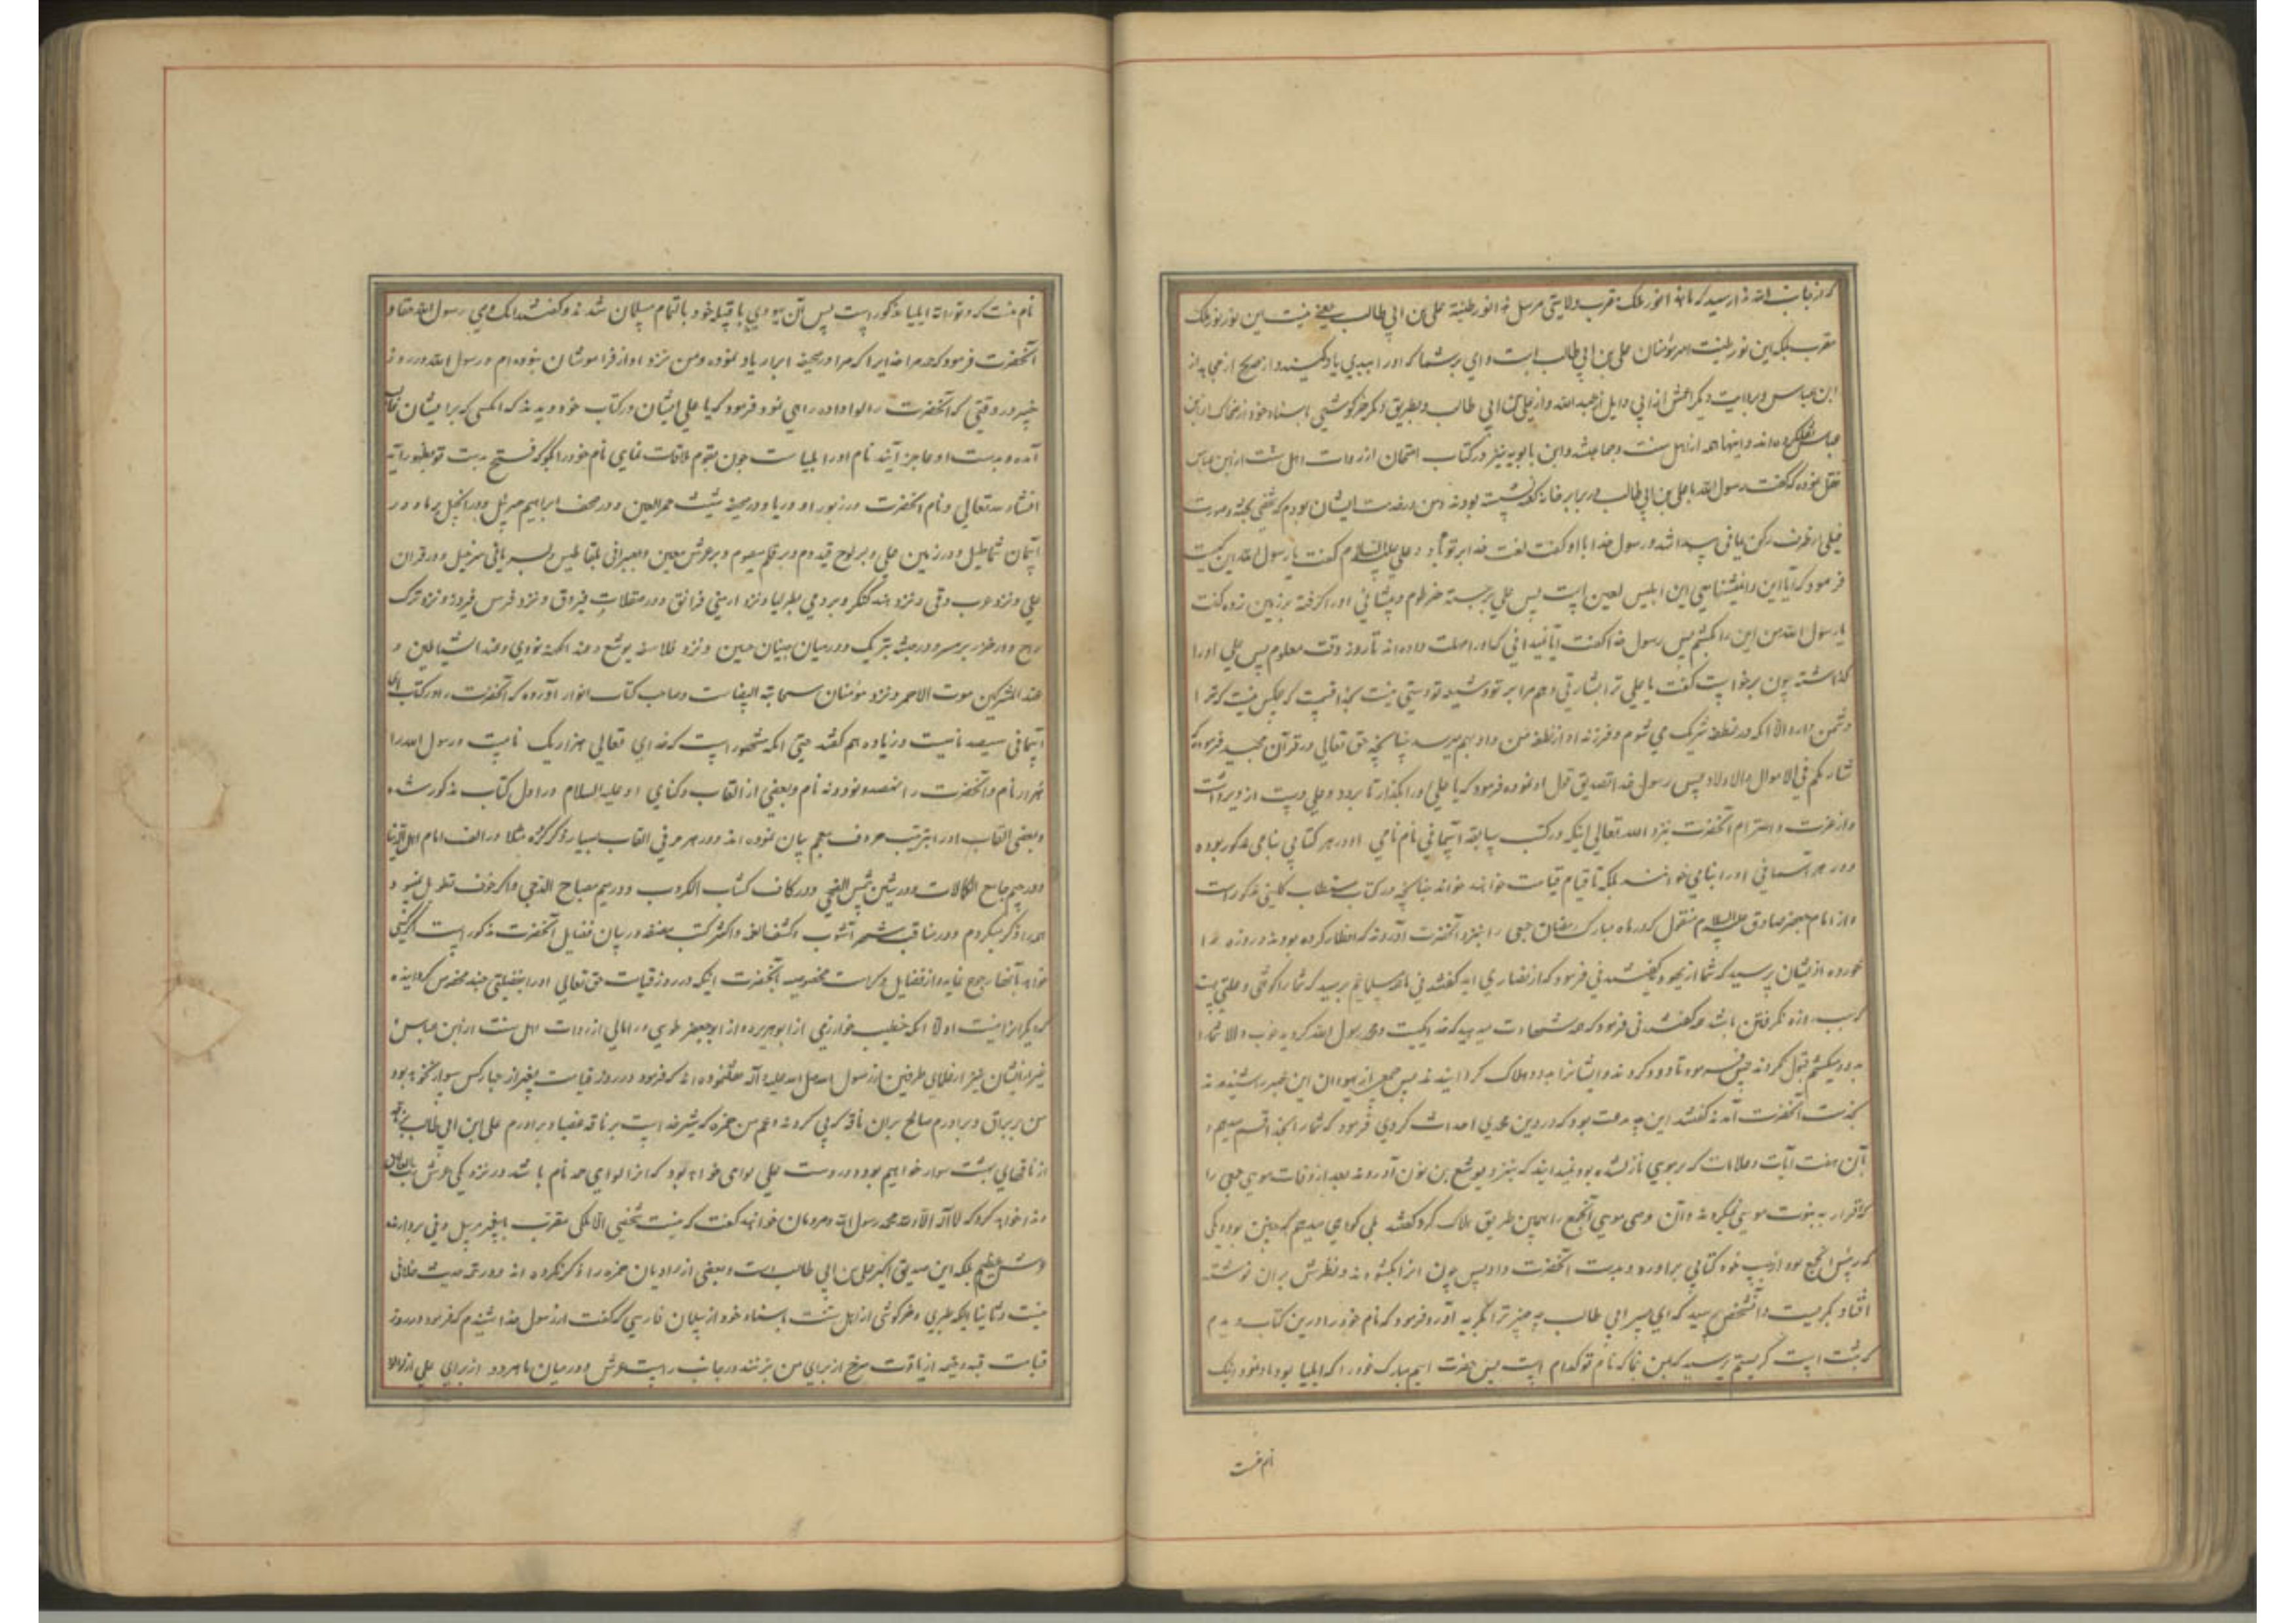 مقرب بلکه این نور طینت امیر مؤمنان علی بن ابی طالب است وای بر شما که او را ببدی یاد کنید و از صحیح از مجاهد از
ابن عباس و بروایت دیگر اعمش از ابی وایل از عبد الله و از علی بن ابی طالب و بطریق دیگر خرکوشی باسناد خود از ضحاک از ابن
عباس نقل کرده اند و اینها همه از اهل سنت و جماعتند و ابن بابویه نیز در کتاب امتحان از روات اهل سنت از ابن عباس
نقل نموده که گفت رسول الله با علی بن ابی طالب در برابر خانه کعبه نشسته بودند و من در خدمت ایشان بودم که شخصی بجثه و صورت
فیلی از طرف رکن یمانی پیدا شد و رسول خدا با او گفت لعنت خدا بر تو باد و علی علیه السلام گفت یا رسول الله این کیست
فرمود که آیا این را نمیشناسی این ابلیس لعین است پس علی برجسته خرطوم و پیشانی او را گرفته بر زمین زده گفت
یا رسول الله من این را بکشم پس رسول خدا گفت آیا نمیدانی که او را مهلت داده اند تا روز وقت معلوم پس علی او را
گذاشته چون برخواست گفت یا علی ترا بشارتی دهم مرا بر تو و شیعه تو دستی نیست بخدا قسم که هیچکس نیست که ترا
دشمن دارد الا آنکه در نطفه شریک می شوم و فرزند او از نطفه من و او بهم میرسد چنانچه حق تعالی در قرآن مجید فرموده که
شارکهم فی الاموال والاولاد پس رسول خدا تصدیق قول او نموده فرمود که یا علی او را بگذار تا برود و علی دست از وی برداشت
و از عزت و احترام آنحضرت نزد الله تعالی اینکه در کتب سابقه آسمانی نام نامی او در هر کتابی بنامی مذکور بوده
و در هر آسمانی او را بنامی خوانند بلکه تا قیام قیامت خوانند چنانچه در کتاب مستطاب کلینی مذکور است
و از امام جعفر صادق علیه السلام منقول که در ماه مبارک رمضان جمعی را بنزد آنحضرت آوردند که افطار کرده بودند و روزه را
خورده از ایشان پرسید که شما از یهود گفتند نی فرمود که از نصاری اید گفتند نی ما مسلمانیم پرسید که شما را کوفتی و علتی هست
که سبب روزه نگرفتن باشد گفتند نی فرمود که شهادت میدهید که خدا یکیست و محمد رسول الله گردید خوب والا شما را
بدود میکشم قبول نکردند پس فرمود تا دود کردند و ایشانرا بدود هلاک گردانیدند پس جمعی از یهودان این خبر را شنیدند
بخدمت آنحضرت آمدند گفتند این چه بدعت بود که در دین محمدی احداث کردی فرمود که شما را بخدا قسم میدهم و
بآن هفت آیات و علامات که بر موسی نازل شده بود نمیدانید که بنزد یوشع بن نون آوردند بعد از وفات موسی جمعی را
که اقرار به نبوت موسی نمیکردند و آن وصی موسی آنجمع را بهمین طریق هلاک کرد گفتند بلی گواهی میدهیم که چنین بود و یکی
که رئیس آنجمع بود از جیب خود کتابی برآورده و بدست آنحضرت داد پس چون آنرا بکشودند و نظرش بر آن نوشته
افتاد بگریست و آنشخص پرسید که ای پسر ابی طالب چه چیز ترا بگریه آورد فرمود که نام خود را درین کتاب دیدم
که ثبت است گریستم پرسید که بمن بنما که نام تو کدام است پس حضرت اسم مبارک خود را که ایلیا بود باو نمود اینک
نام منست
نام منست که در توراة ایلیا مذکور است پس آن یهودی با قبیله خود باتمام مسلمان شدند و گفتند انک وصی رسول الله حقا و
آنحضرت فرمود که حمد مر خدایرا که مرا در صحیفه ابرار یاد نموده و من نزد او از فراموشان نبوده ام و رسول الله در روز
خیبر در وقتی که آنحضرت را لوا داده راهی نمود فرمود که یا علی ایشان در کتاب خود دیده اند که آنکسی که بر ایشان غالب
آمده و بدست او عاجز آیند نام او را ایلیا ست چون بقوم ملاقات نمایی نام خود را بگو که فتح بدست تو بظهور آید
انشاء الله تعالی و نام آنحضرت در زبور اوریا و در صحیفه شیث حمر العین و در صحف ابراهیم حزبیل و در انجیل بریا و در
آسمان شماطیل و در زمین علی و بر لوح قیدوم و بر قلم منصوم و بر عرش معین و بعبرانی بلقاطیس و بسریانی شرحیل و در قرآن
علی و نزد عرب وفی و نزد هند کنکر و برومی بطرلیا و نزد ارمنی فرانق و در صقلاب فیروق و نزد فرس فیروز و نزد ترک
راج و از خزر بریر و در حبشه بتریک و در میان جنیان حبین و نزد فلاسفه یوشع و عند الکهنه بوی و عند الشیاطین و
عند المشرکین موت الاحمر و نزد مؤمنان سحابه البیضا است و صاحب کتاب انوار آورده که آنحضرت را در کتابهای
آسمانی سیصد نامست و زیاده هم گفته حتی آنکه مشهور است که خدای تعالی هزار و یک نامست و رسول الله را
هزار نام و آنحضرت را نهصد و نود و نه نام و بعضی از القاب و کنای او علیه السلام در اول کتاب مذکور شده
و بعضی القاب او را بترتیب حروف معجم بیان نموده اند و در هر حرفی القاب بسیار ذکر کرده مثلا در الف امام اهل الدنیا
و در جیم جامع الکمالات و در شین شمس الضحی و در کاف کشاف الکروب و در میم مصباح الدجی و اگر خوف تطویل نبود
همه را ذکر میکردم و در مناقب شهر آشوب و کشف الغمه و اکثر کتب مصنفه در بیان فضایل آنحضرت مذکور است اگر کسی
خواهد بآنها رجوع نماید و از فضایل و کرامت مخصوصه بآنحضرت اینکه در روز قیامت حق تعالی او را بفضیلتی چند مخصوص گردانیده
که دیگرانرا نیست اولا آنکه خطیب خوارزمی از ابو هریره و از ابو جعفر طوسی در امالی از روات اهل سنت از ابن عباس
غیر از ایشان نیز از علمای طرفین از رسول الله صلی الله علیه و آله نقل نموده اند که فرمود در روز قیامت بغیر از چهار کس سوار نخواهد بود
من بر براق و برادرم صالح بر آن ناقه که پی کردند و عم من حمزه که شیر خداست بر ناقه عضبا و برادرم علی ابن ابی طالب بر ناقه
از ناقهای بهشت سوار خواهیم بود و در دست علی لوای خواهد بود که آنرا لوای حمد نام باشد در نزدیکی عرش رب العالمین
ندا خواهد کرد که لا اله الا الله محمد رسول الله و مردمان خواهند گفت که نیست شخصی الا ملکی مقرب یا پیغمبر مرسل و فی بردارنده
عرش عظیم بلکه این صدیق اکبر علی بن ابی طالب است و بعضی از راویان حمزه را ذکر نکرده اند و در تتمه حدیث خلافی
نیست و ثانیا آنکه طبری و خرکوشی از اهل سنت باسناد خود از سلمان فارسی که گفت از رسول خدا شنیدم که فرمود در روز
قیامت قبه و خیمه از یاقوت سرخ از برای من بزنند در جانب راست عرش و در میان ما هر دو از برای علی از لؤلؤ